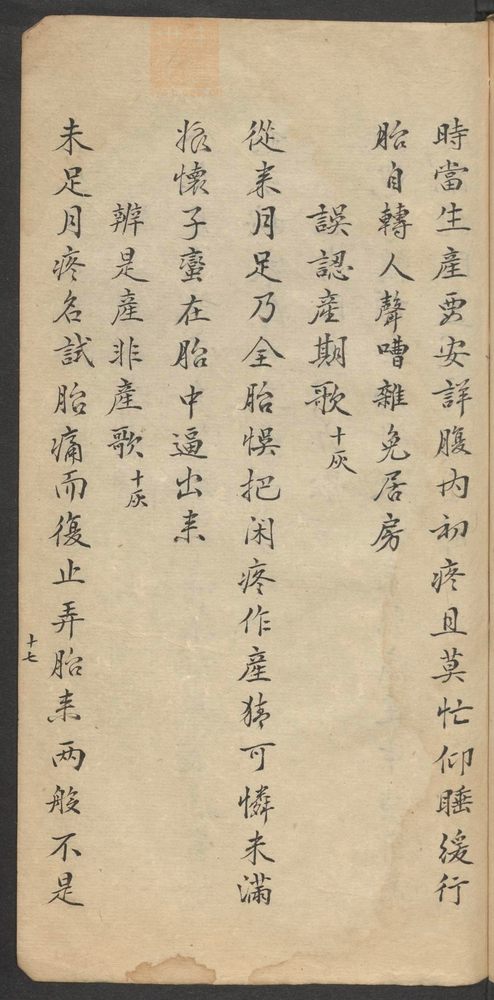 時當生產要安詳腹內初疼且莫忙仰睡緩行
胎自轉人聲嘈雜免居房
誤認產期歌 十灰
從来月足乃全胎悞把闲疼作産猜可憐未滿
懷子蛮在胎中逼出来
辨是產非產歌 十灰
未足月疼名試胎痛而復止弄胎来两般不是
十七